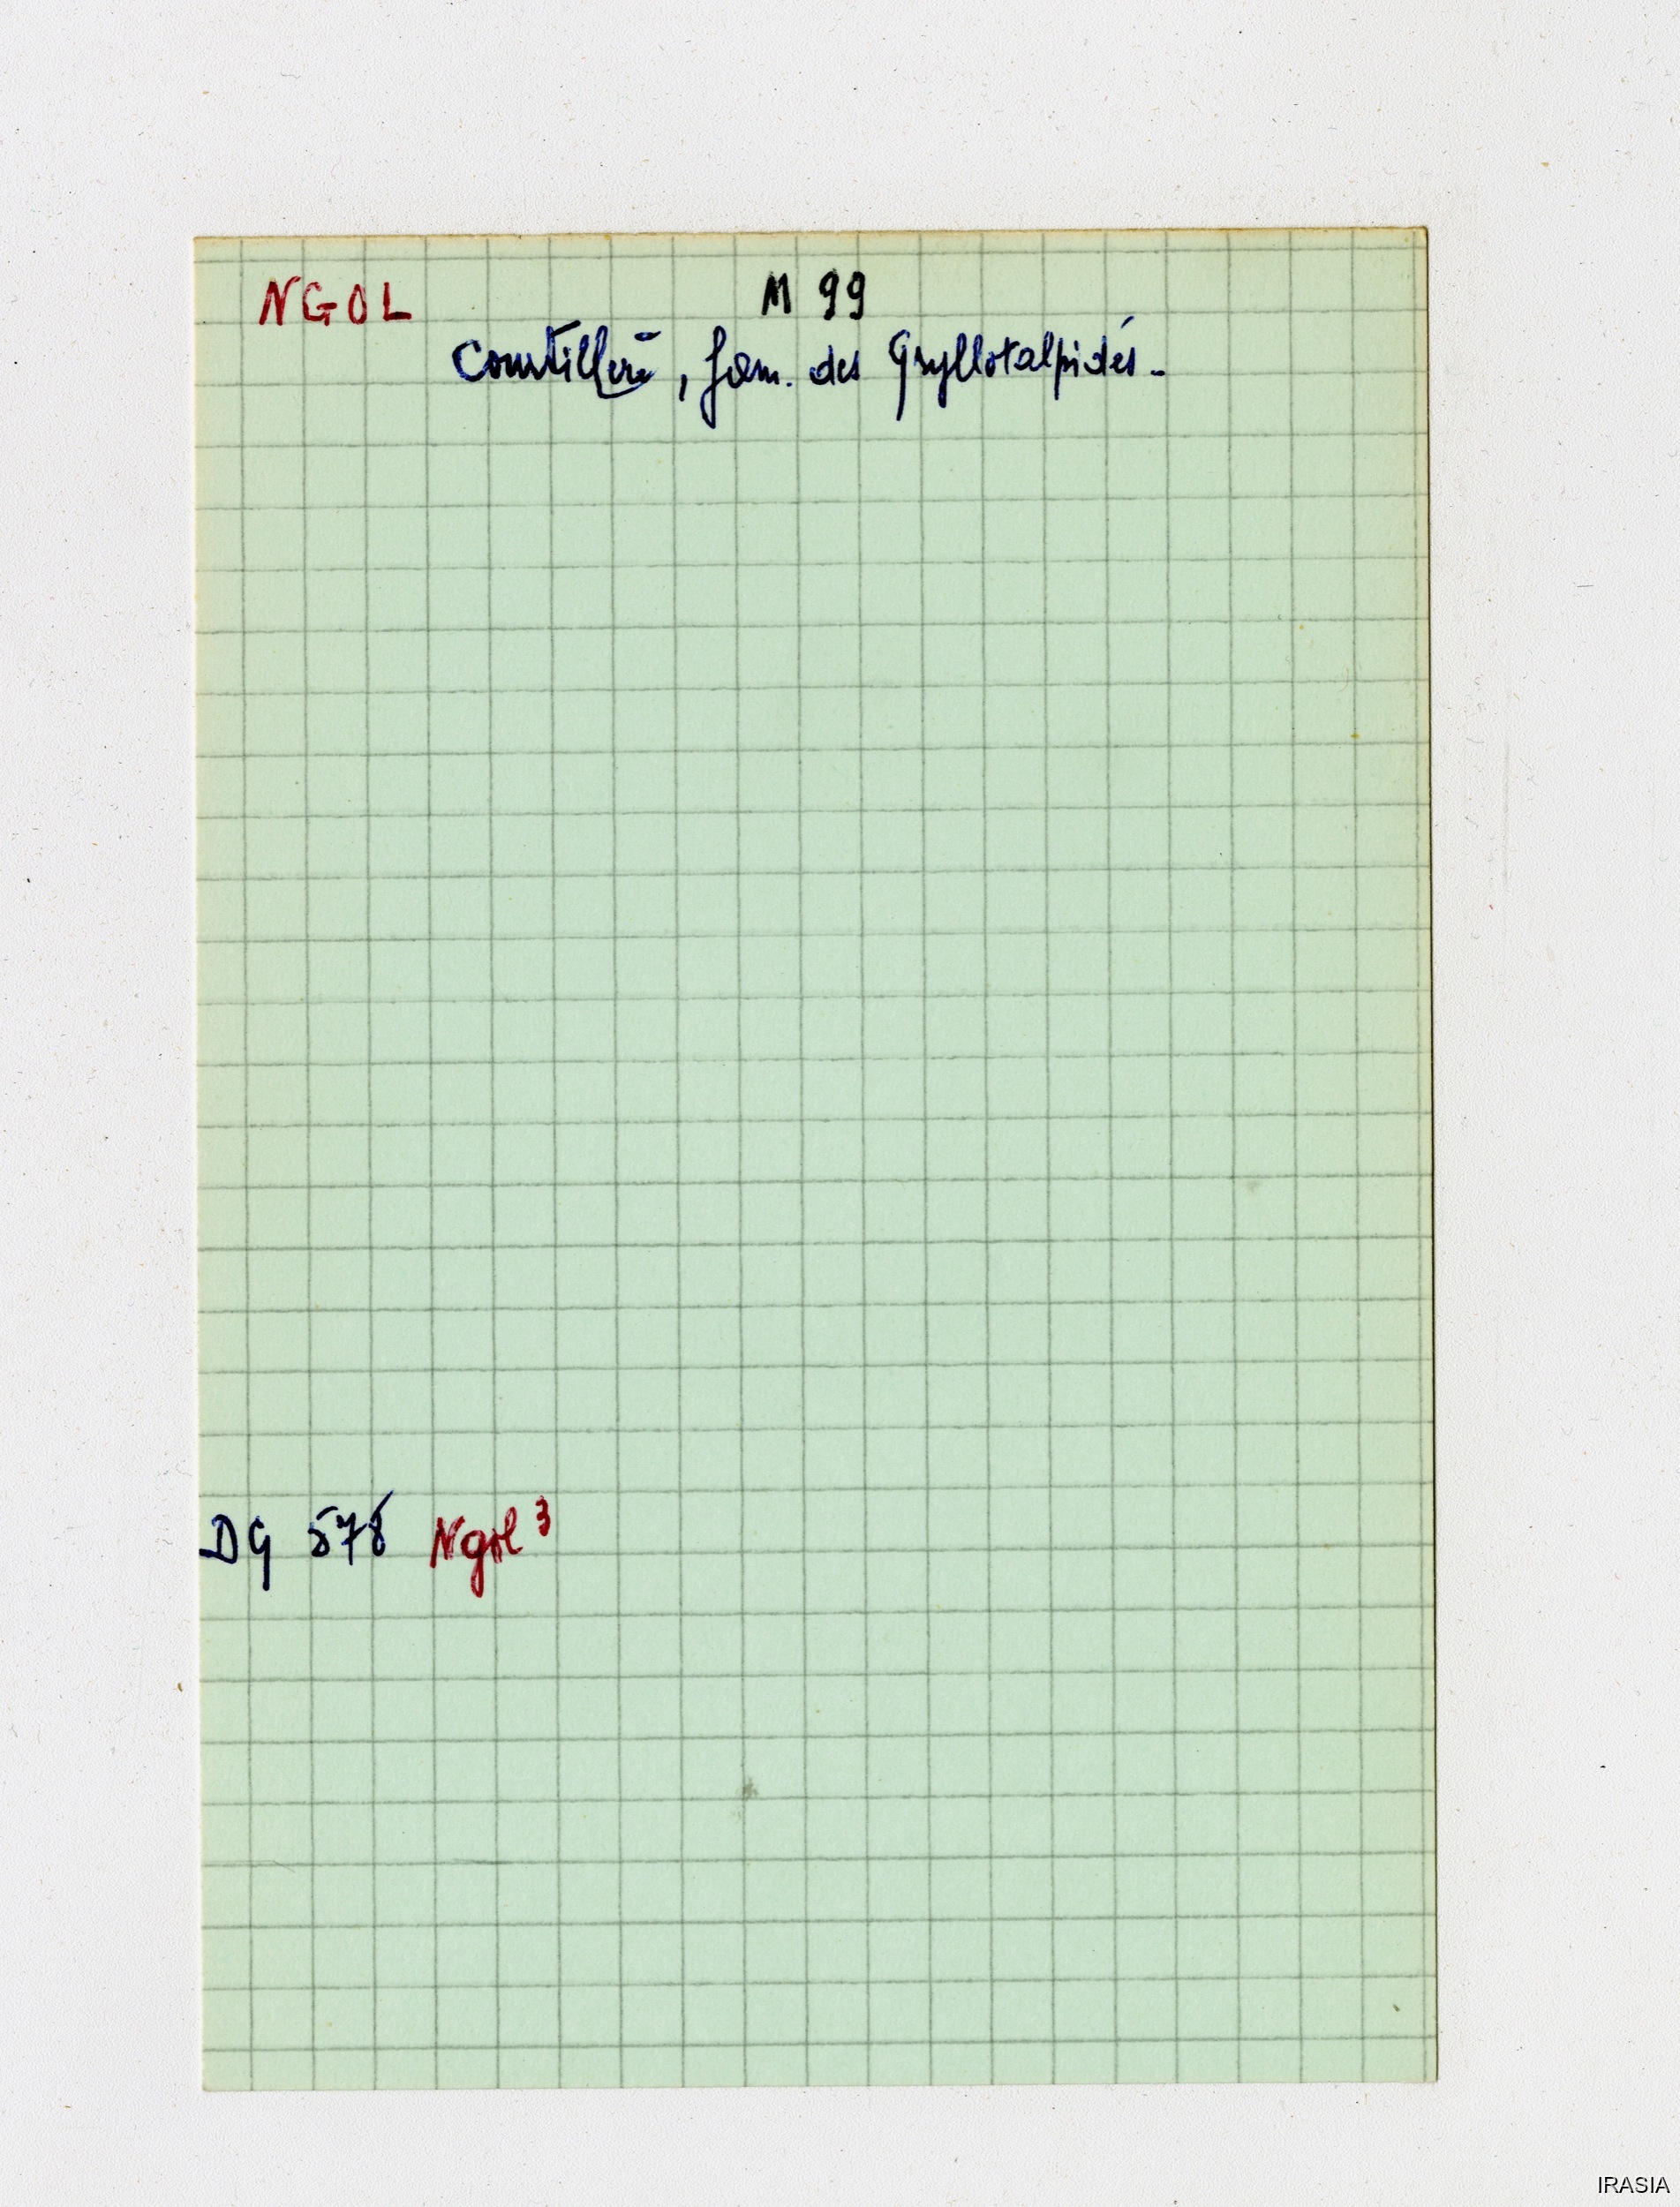 NGOL M 99
Courtilière, fam. des Gryllotalpidés.
DG 578 Ngol 3
IRASIA